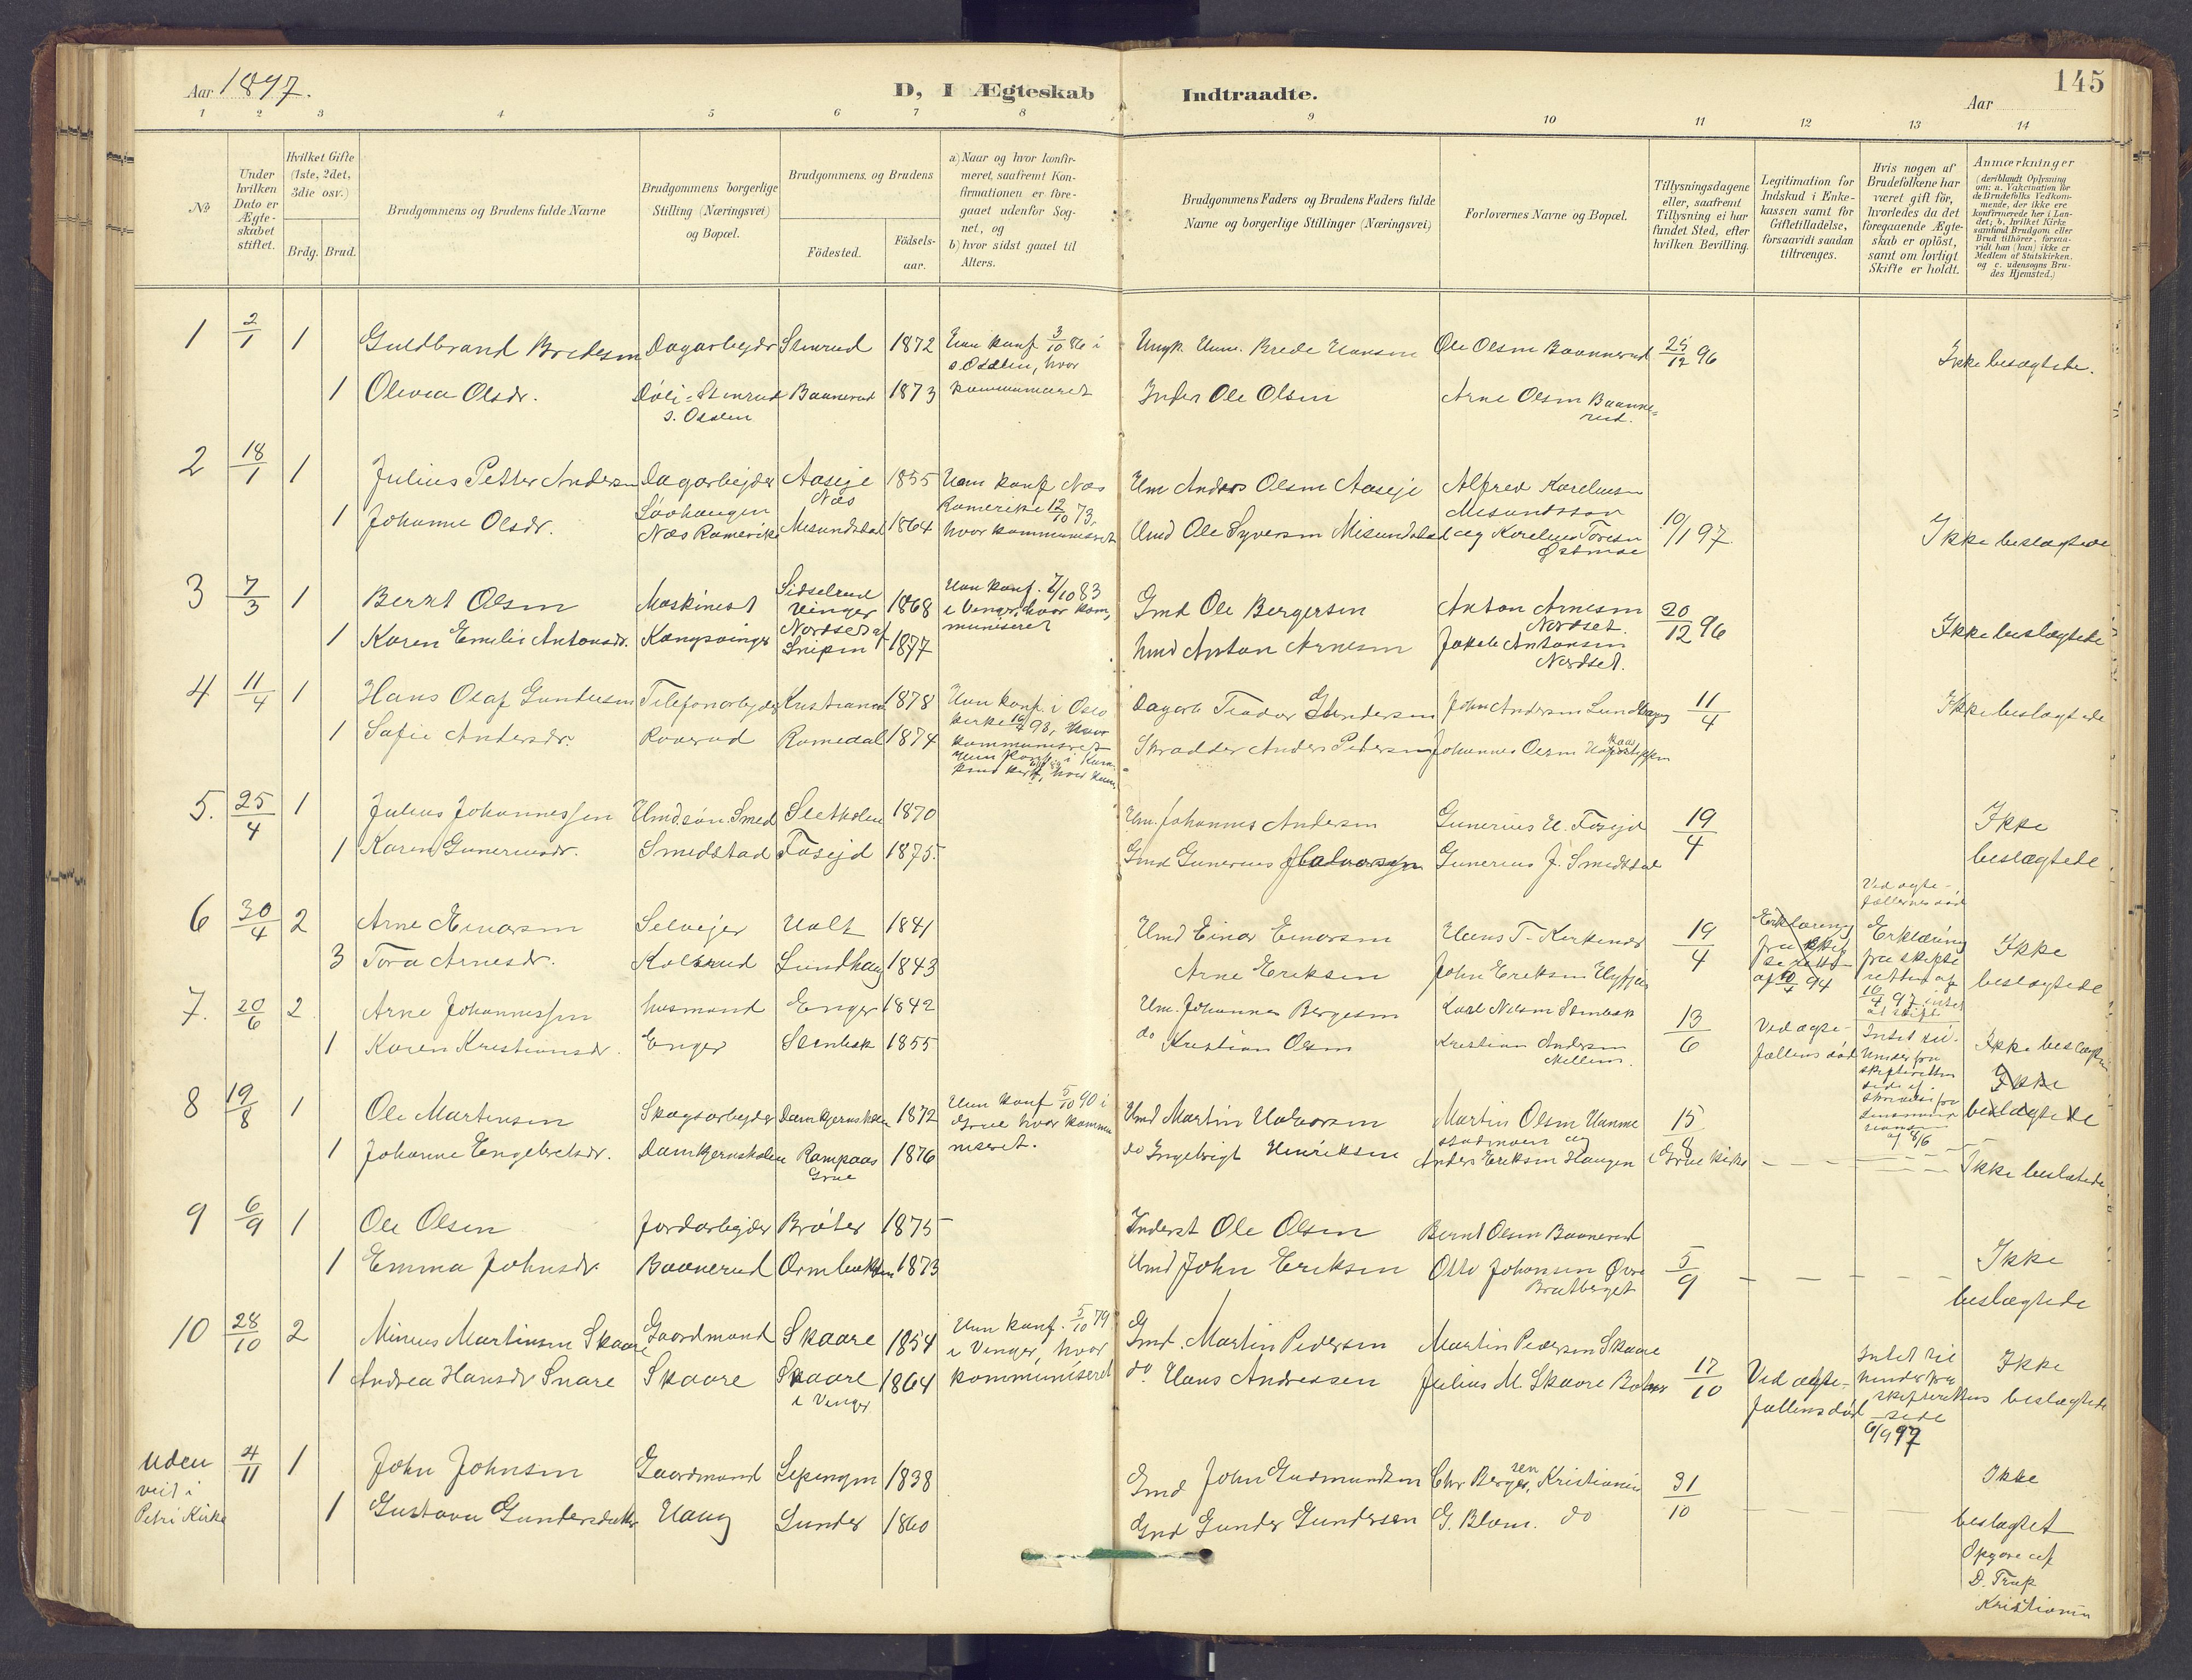 Aar 1897.
D, I Ægteskab Indtraadte.
145
Aar
1 2 3 4 5 6 7 8 9 10 11 12 13 14
№
Under hvilken Dato er Ægteskabet stiftet.
Hvilket Gifte (1ste, 2det, 3die osv.)
Brdg. Brud.
Brudgommens og Brudens fulde Navne
Brudgommens borgerlige Stilling (Næringsvei) og Bopæl.
Brudgommens og Brudens
Födested.
Födsels-aar.
a) Naar og hvor konfirmeret, saafremt Konfirmationen er foregaaet udenfor Sognet, og
b) hvor sidst gaaet til Alters.
Brudgommens Faders og Brudens Faders fulde Navne og borgerlige Stillinger (Næringsvei)
Forlovernes Navne og Bopæl.
Tillysningsdagene eller, saafremt Tillysning ei har fundet Sted, efter hvilken Bevilling.
Legitimation for Indskud i Enkekassen samt for Giftetilladelse, forsaavidt saadan tiltrænges.
Hvis nogen af Brudefolkene har været gift för, hvorledes da det foregaaende Ægteskab er oplöst, samt om lovligt Skifte er holdt.
Anmærkninger (deriblandt Oplysning om: a. Vakcination för de Brudefolks Vedkommende, der ikke ere konfirmerede her i Landet; b. hvilket Kirkesamfund Brudgom eller Brud tilhörer, forsaavidt han (hun) ikke er Medlem af Statskirken, og c. udensogns Brudes Hjemsted.)
1 2/1 1 Guldbrand Bredesen Dagarbejder Stenrud 1872 Han konf 3/10 86 i s. Osdlen, hvor kommuniceret Ungk. Hmn. Brede Hansen Ole Olsen Baannerud 25/12 96 Ikke beslægtede.
1 Olivia Olsdr. Döli-Stenrud s. Osdlen Baanerud 1873 Inders Ole Olsen Arne Olsen Baannerud.
2 18/1 1 Julius Petter Andersen Dagarbejder Aaseje Næs 1855 Ham konf Næs Romerike 12/10 73, hvor kommuniceret Hm Anders Olsen Aaseje Alfred Karelius
1 Johanne Olsdr. Løvhaugen Næs Romerike Mesundstad 1864 Hmd Ole Syversen Misundstad og Karelius Toresen Østmoe 10/1 97. Ikke beslægtede
3 7/3 1 Bernt Olsen Maskinest Sidselrud Vinger 1868 Han konf. 7/10 83 i Vinger, hvor kommuniseret Gmd Ole Bergersen Anton Arnesen Nordset. 20/12 96
1 Karen Emilie Antonsdr. Kongsvinger Nordset af Snipen 1877 hmd Anton Arnesen Jakob Antonsen Nordset. Ikke beslægtede
4 11/4 1 Hans Olaf Gundersen Telefonarbejder Kristiania 1878 Han konf. i Oslo kirke 16/4 93, hvor kommuniseret Dagarb Teodor Gundersen John Andersen Lundhaug 11/4 Ikke beslægtede
1 Sofie Andersdr. Roverud Romedal 1874 Skrædder Anders Petersen Johannes Olsen
5. 25/4 1 Julius Johannessen Hmdsøn. Smed Sletholen 1870 Hm. Johannes Andersen Gunerius H. Fosejd 19/4 Ikke
1 Karen Gunerusdr. Smedstad Fosejd 1875. Gmd Gunerius Halvorsen Gunerius J. Smedstad beslægtede
6 30/4 2 Arne Einarsen Selvejer Holt 1841 Hmd Einar Einarsen Hans T. Kirkenær 19/4 Erklæring fra skifteretten af 10/4 94 Ved ægtefællernes død Erklæring fra skifteretten af 10/4 97 Ikke
3 Tora Arnesdr. Kolbrud Lundhaug 1843 Arne Eriksen John Eriksen beslægtede
7. 20/6 2. Arne Johannessen husmand Enger 1842 Hm. Johannes Bergesen Karl Nilsen Stenbak 13/6 Ved ægtefællens død Intet til hinder fra skifterettens side af 8/6
1 Karen Kristiansdr. Enger Stenbak 1855 do Kristian Olsen Kristian Andersen Mellem. Ikke beslægtede
Ikke beslægtede
8 19/8 1 Ole Martinsen Skogsarbejder Damtjernsholen 1872 Han konf 5/10 90 i Grue hvor kommuniseret. Hmd Martin Halvorsen Martin Olsen Hanne og 15/8
1 Johanne Engebretsdr. Damtjernsholen Rampaas Grue 1876 do Ingebrigt Henriksen Anders Eriksen Haugen i Grue kirke Ikke beslætede
9 6/9 1 Ole Olsen Jordarbejder Bröter 1875 Inderst Ole Olsen Bernt Olsen Baanerud
1 Emma Johnsdr. Baanerud Ormbækken 1873 Hmd John Eriksen Otto Johansen Øvre Bratberget 5/9 Ikke beslægtede
10 28/10 2 Minius Martinsen Skaare Gaardmand Skaare 1854 Han konf. 5/10 79 i Vinger, hvor kommuniseret Gmd. Martin Pedersen Martin Pedersen Skaare 17/10 Ved ægtefællens død Intet til hinder fra skifterettens side 6/9 97 Ikke beslægtede
1 Andrea Hansdr Snare Skaare Skaare i Vinger 1864 do. Hans Andreasen Julius M. Skaare
uden veil i Petri Kirke 4/11 1 John Johnsen Gaardmand Sepengen 1838 Gmd John Gudmundsen Chr Bergersen, Kristiania 31/10 Ikke
1 Gustava Gundersdatter Haug Lunder 1860 Gmd Gunder Gundersen G. Blom. do beslægtet
Opgave af
D. Trap
Kristiania